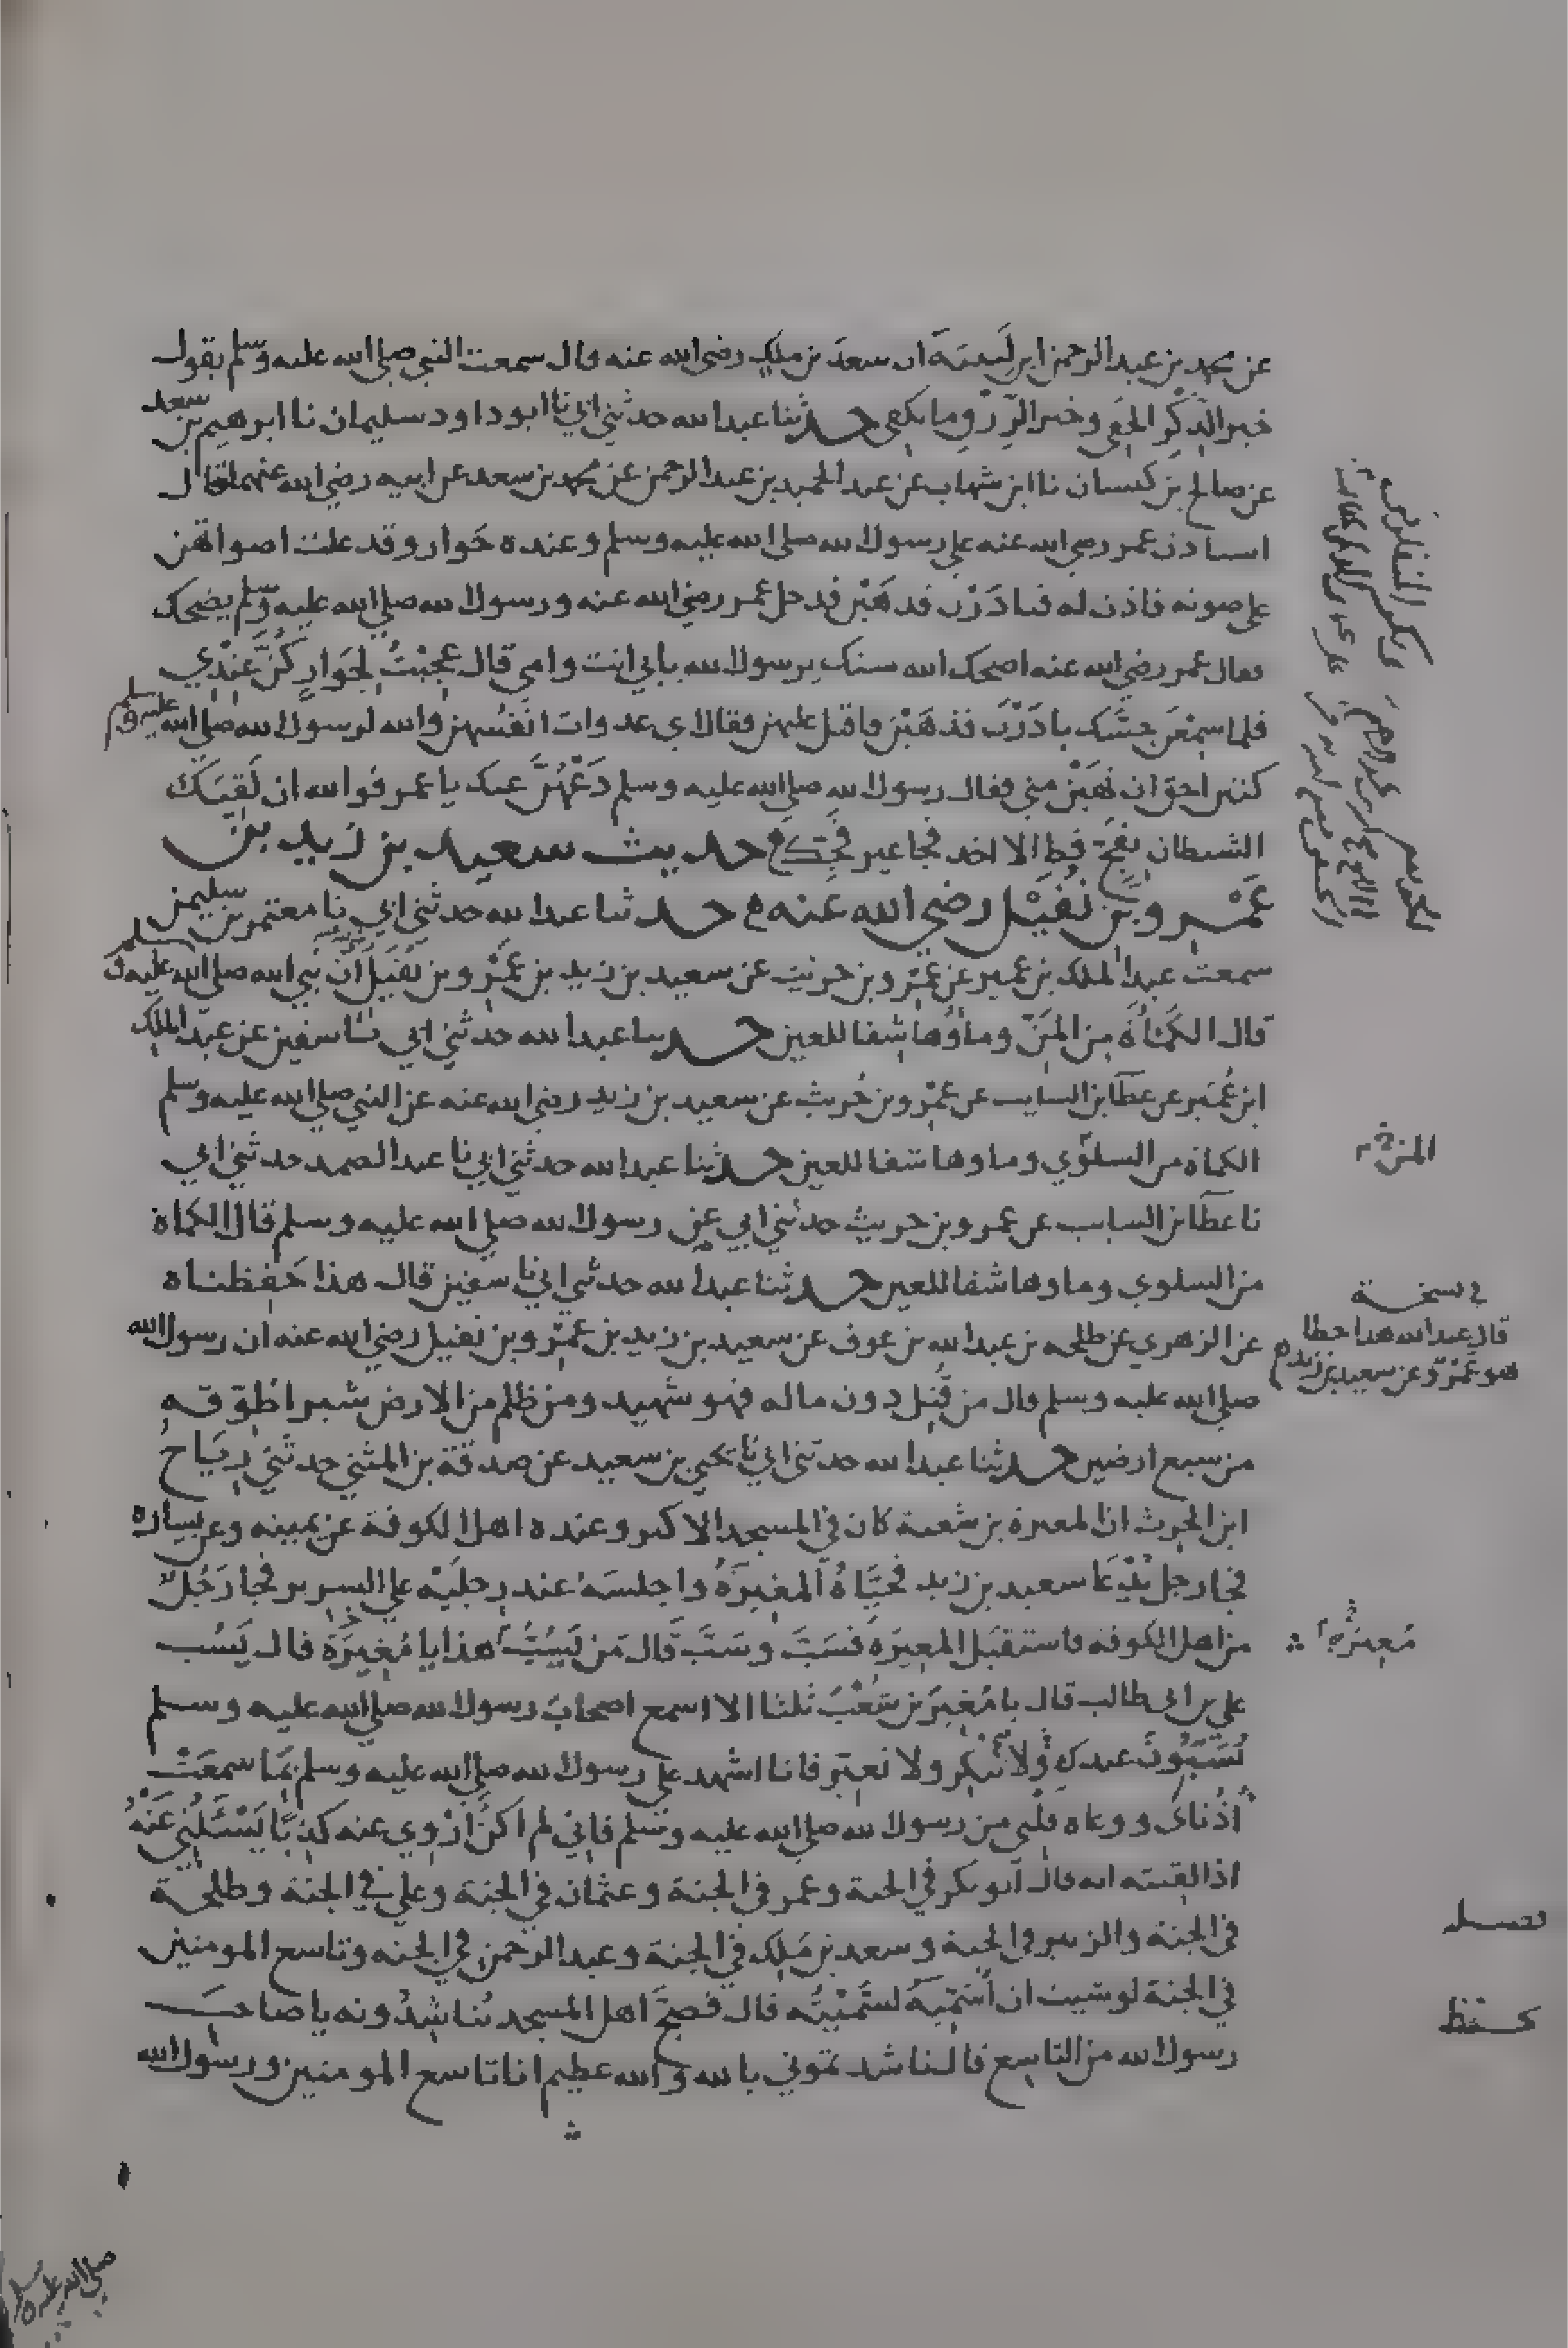 عن محمد بن عبد الرحمن ابن لبيبة ان سعد بن ملك رضي الله عنه قال سمعت النبي صلى الله عليه وسلم يقول
خير الذكر الخفي وخير الرزق ما يكفي حدثنا عبد الله حدثني ابي نا ابو داود سليمان نا ابرهيم بن سعد
عن صالح بن كيسان نا ابن شهاب عن عبد الحميد بن عبد الرحمن عن محمد بن سعد عن ابيه رضي الله عنهما قال
استاذن عمر رضي الله عنه على رسول الله صلى الله عليه وسلم وعنده جوار وقد علت اصواتهن
على صوته فاذن له فبادرن فذهبن فدخل عمر رضي الله عنه ورسول الله صلى الله عليه وسلم يضحك
فقال عمر رضي الله عنه اضحك الله سنك يرسول الله بابي انت وامي قال عجبت لجوار كن عندي
فلما سمعن حسك بادرن فذهبن فاقبل عليهن فقال اي عدوات انفسهن والله لرسول الله صلى الله عليه وسلم
كنتن احق ان تهبن مني فقال رسول الله صلى الله عليه وسلم دعهن عنك يا عمر فوالله ان لقيك
الشيطان بفج قط الا اخذ فجا غير فجك حديث سعيد بن زيد بن
عمرو بن نفيل رضي الله عنه حدثنا عبد الله حدثني ابي نا معتمر بن سليمن
سمعت عبد الملك بن عمير عن عمرو بن حريث عن سعيد بن زيد بن عمرو بن نفيل ان نبي الله صلى الله عليه وسلم
قال الكمأة من المن وماؤها شفا للعين حدثنا عبد الله حدثني ابي نا سفين عن عبد الملك
ابن عمير عن عطا بن السايب عن عمرو بن حريث عن سعيد بن زيد رضي الله عنه عن النبي صلى الله عليه وسلم
الكماة من السلوي وماوها شفا للعين حدثنا عبد الله حدثني ابي نا عبد الصمد حدثني ابي
المن
نا عطا بن السايب عن عمرو بن حريث حدثني ابي عن رسول الله صلى الله عليه وسلم قال الكماة
من السلوي وماوها شفا للعين حدثنا عبد الله حدثني ابي نا سفين قال هذا حفظناه
في نسخة
قال عبد الله هذا خطا
هو عمرو عن سعيد بن زيد
عن الزهري عن طلحه بن عبد الله بن عوف عن سعيد بن زيد بن عمرو بن نفيل رضي الله عنه ان رسول الله
صلى الله عليه وسلم قال من قتل دون ماله فهو شهيد ومن ظلم من الارض شبرا طوقه
من سبع ارضين حدثنا عبد الله حدثني ابي نا يحيى بن سعيد عن صدقة بن المثنى حدثني رياح
ابن الحرث ان المغيرة بن شعبة كان في المسجد الاكبر وعنده اهل الكوفة عن يمينه وعن يساره
فجا رجل يدعا سعيد بن زيد فحياه المغيرة واجلسه عند رجليه على السرير فجا رجل
من اهل الكوفه فاستقبل المغيرة فسب وسب قال من يسب هذا يا مغيرة قال يسب
مغيره
علي بن ابي طالب قال يا مغير بن شعب ثلثا الا اسمع اصحاب رسول الله صلى الله عليه وسلم
يسبون عندك ولا تنكر ولا تغير فانا اشهد على رسول الله صلى الله عليه وسلم بما سمعت
اذناي ووعاه قلبي من رسول الله صلى الله عليه وسلم فاني لم اكن اروي عنه كذبا يسئلني عنه
اذا لقيته انه قال ابو بكر في الجنة وعمر في الجنة وعثمان في الجنة وعلي في الجنة وطلحة
في الجنة والزبير في الجنة وسعد بن ملك في الجنة وعبد الرحمن في الجنه وتاسع المومنين
في الجنة لو شيت ان اسميه لسميته قال فضج اهل المسجد يناشدونه يا صاحب
رسول الله من التاسع قال ناشدتموني بالله والله عظيم انا تاسع المومنين ورسول الله
صلى الله عليه وسلم